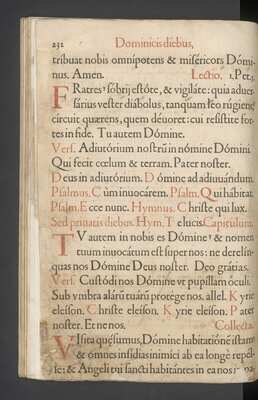 232 Dominicis diebus,
tribuat nobis omnipotens & misericors Dómi-
nus. Amen. Lectio. 1. Pet. 5.
FRatres: sóbrij estóte, & vigiláte: quia aduer-
sárius vester diábolus, tanquam léo rúgiens
circuit quærens, quem déuoret: cui resístite for-
tes in fide. Tu autem Dómine.
Vers. Adiutórium nostrũ in nómine Dómini
Qui fecit cœlum & terram. Pater noster.
Deus in adiutórium. Dómine ad adiuuándum.
Psalmus. Cùm inuocárem. Psalm. Qui hábitat.
Psalm. Ecce nunc. Hymnus. Christe qui lux.
Sed priuatis diebus. Hym. Te lucis. Capitulum.
TV autem in nobis es Dómine: & nomen
tuum inuocátum est super nos: ne derelin-
quas nos Dómine Deus noster. Deo grátias.
Vers. Custódi nos Dómine vt pupíllam óculi.
Sub vmbra alárũ tuárũ prótege nos. allel. Kyrie
eleíson. Christe eleíson. Kyrie eleíson. Pater
noster. Et ne nos. Collecta.
VIsita quęsumus, Dómine habitatiónẽ istam
& omnes insídias inimíci ab ea longè repél-
le: & Angeli tui sancti hábitántes in ea nos in pa-